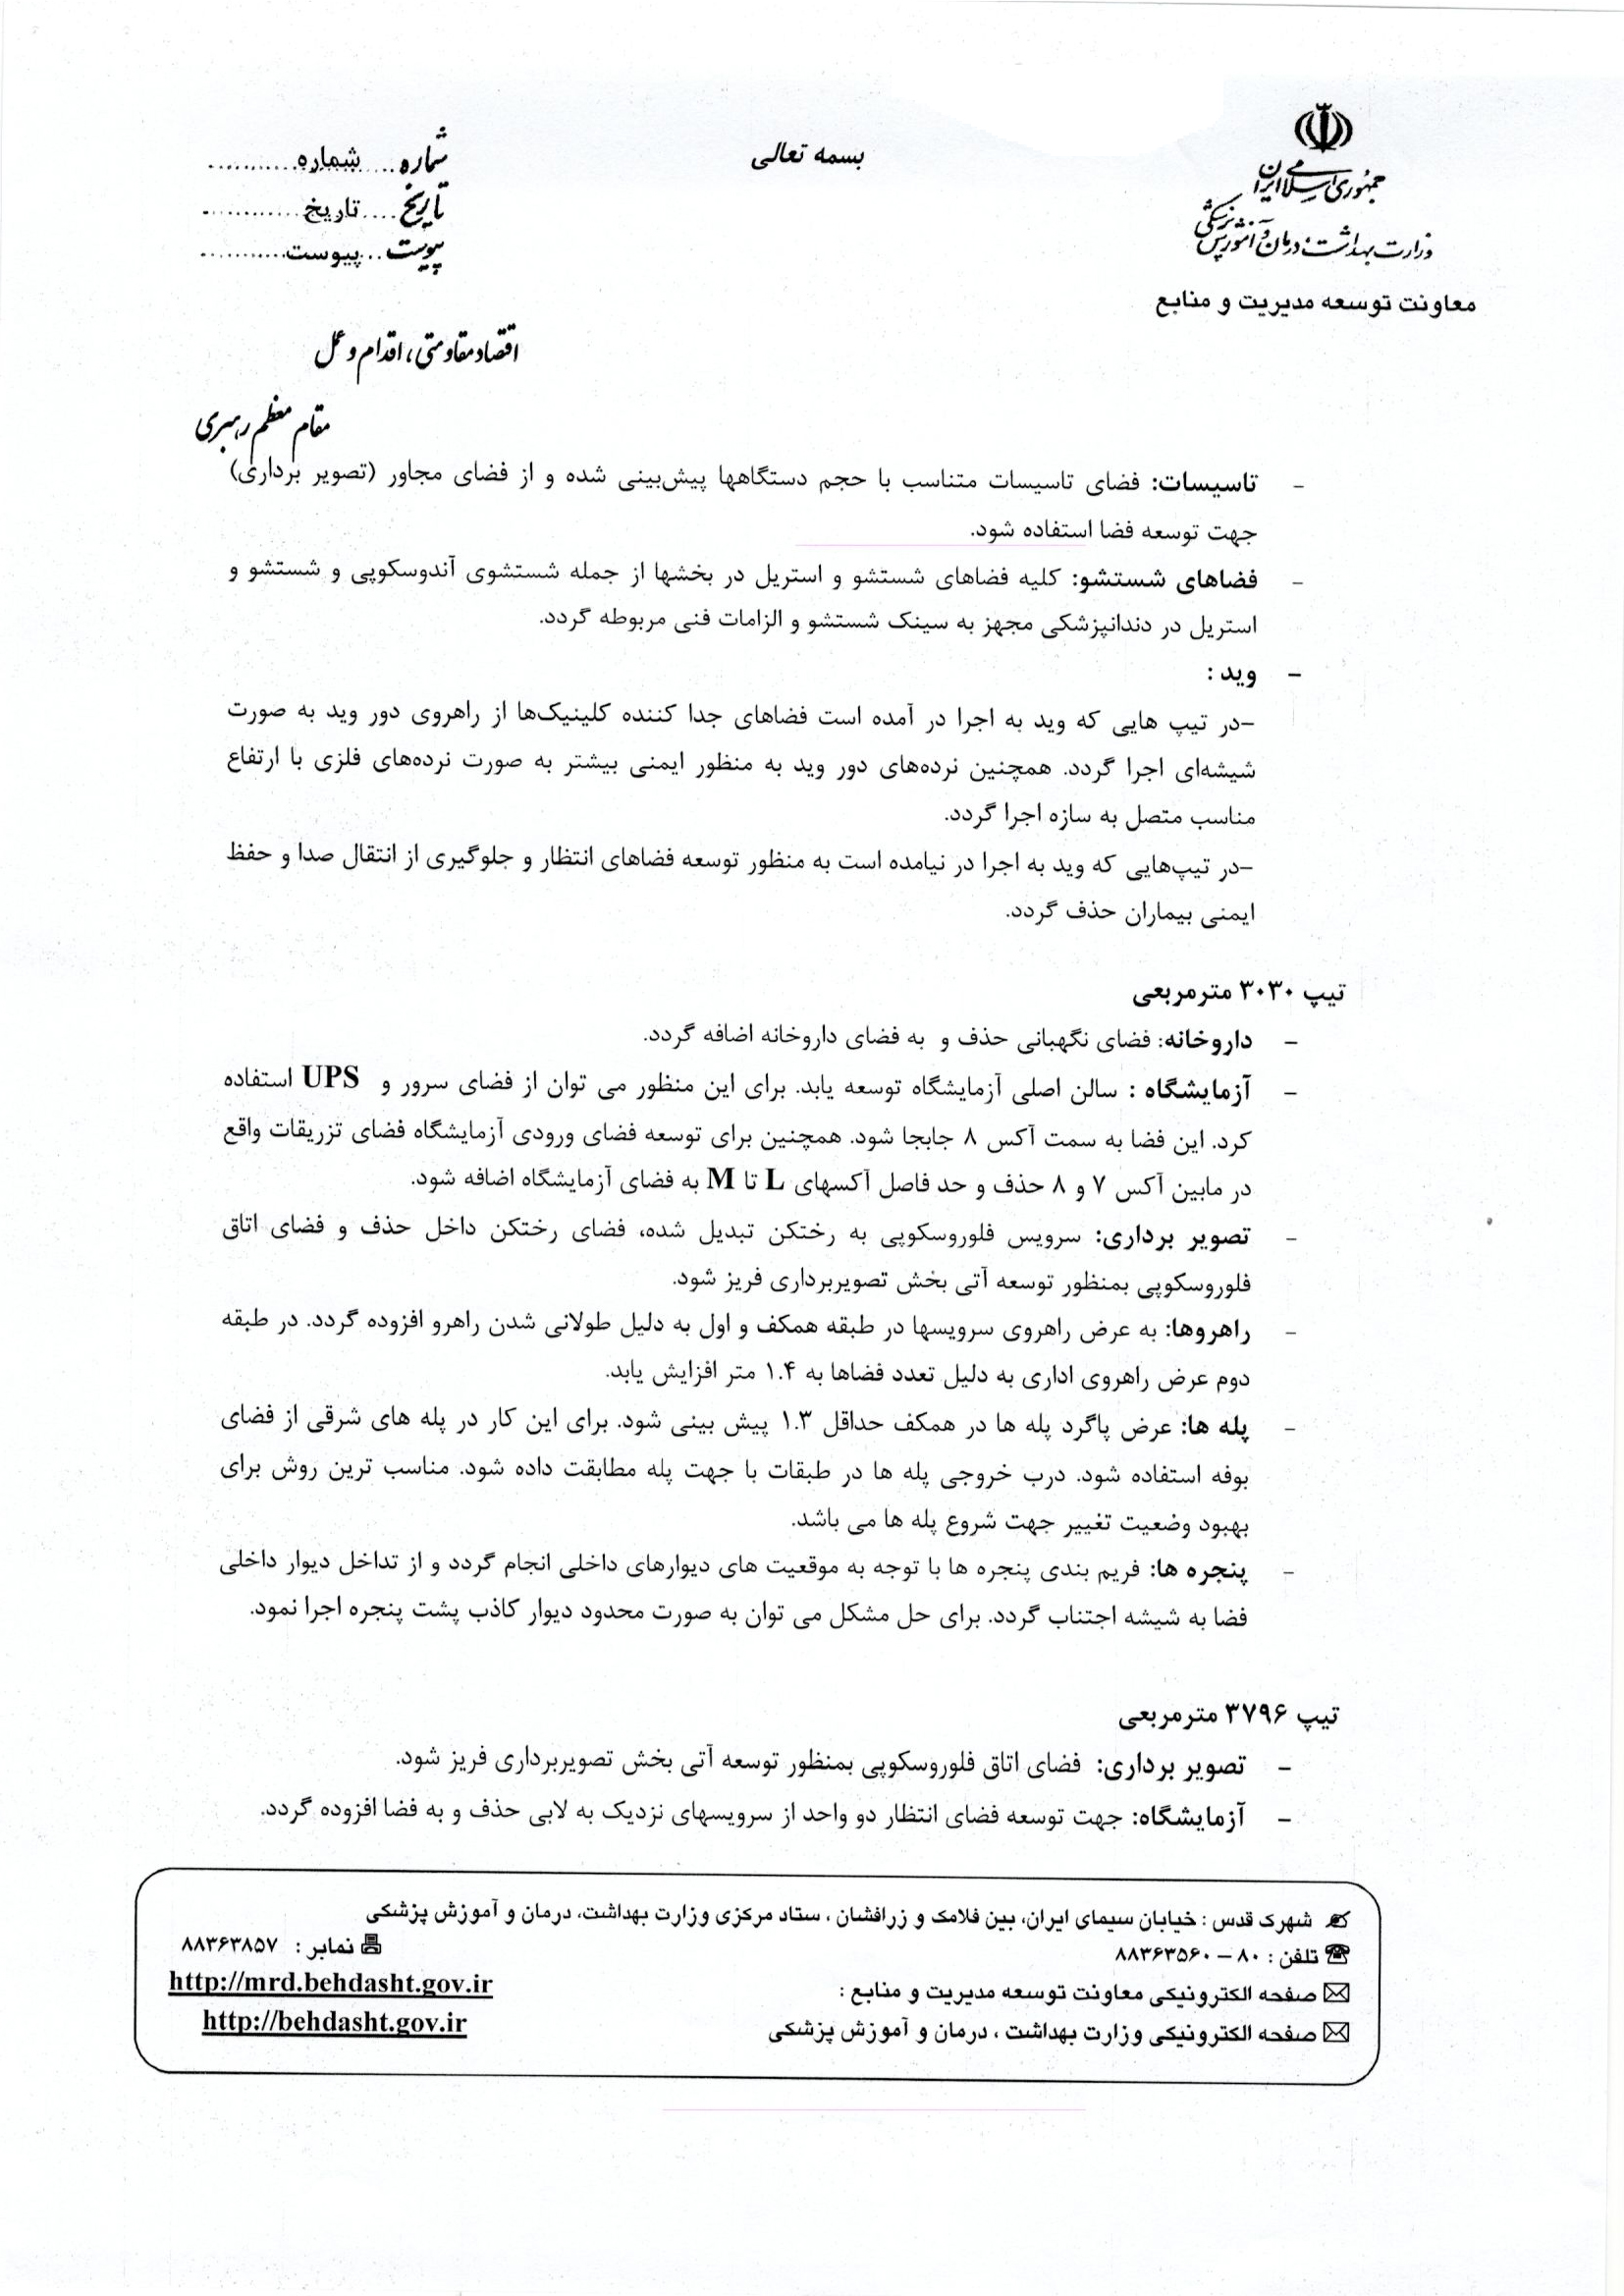 بسمه تعالی
جمهوری اسلامی ایران
وزارت بهداشت، درمان و آموزش پزشکی
معاونت توسعه مدیریت و منابع
شماره.....شماره............
تاریخ.....تاریخ............
پیوست...پیوست............
اقتصاد مقاومتی، اقدام و عمل
مقام معظم رهبری
- تاسیسات: فضای تاسیسات متناسب با حجم دستگاهها پیش‌بینی شده و از فضای مجاور (تصویر برداری)
جهت توسعه فضا استفاده شود.
- فضاهای شستشو: کلیه فضاهای شستشو و استریل در بخشها از جمله شستشوی آندوسکوپی و شستشو و
استریل در دندانپزشکی مجهز به سینک شستشو و الزامات فنی مربوطه گردد.
- وید :
-در تیپ هایی که وید به اجرا در آمده است فضاهای جدا کننده کلینیک‌ها از راهروی دور وید به صورت
شیشه‌ای اجرا گردد. همچنین نرده‌های دور وید به منظور ایمنی بیشتر به صورت نرده‌های فلزی با ارتفاع
مناسب متصل به سازه اجرا گردد.
-در تیپ‌هایی که وید به اجرا در نیامده است به منظور توسعه فضاهای انتظار و جلوگیری از انتقال صدا و حفظ
ایمنی بیماران حذف گردد.
تیپ ۳۰۳۰ مترمربعی
- داروخانه: فضای نگهبانی حذف و به فضای داروخانه اضافه گردد.
- آزمایشگاه : سالن اصلی آزمایشگاه توسعه یابد. برای این منظور می توان از فضای سرور و UPS استفاده
کرد. این فضا به سمت آکس ۸ جابجا شود. همچنین برای توسعه فضای ورودی آزمایشگاه فضای تزریقات واقع
در مابین آکس ۷ و ۸ حذف و حد فاصل آکسهای L تا M به فضای آزمایشگاه اضافه شود.
- تصویر برداری: سرویس فلوروسکوپی به رختکن تبدیل شده، فضای رختکن داخل حذف و فضای اتاق
فلوروسکوپی بمنظور توسعه آتی بخش تصویربرداری فریز شود.
- راهروها: به عرض راهروی سرویسها در طبقه همکف و اول به دلیل طولانی شدن راهرو افزوده گردد. در طبقه
دوم عرض راهروی اداری به دلیل تعدد فضاها به ۱.۴ متر افزایش یابد.
- پله ها: عرض پاگرد پله ها در همکف حداقل ۱.۳ پیش بینی شود. برای این کار در پله های شرقی از فضای
بوفه استفاده شود. درب خروجی پله ها در طبقات با جهت پله مطابقت داده شود. مناسب ترین روش برای
بهبود وضعیت تغییر جهت شروع پله ها می باشد.
- پنجره ها: فریم بندی پنجره ها با توجه به موقعیت های دیوارهای داخلی انجام گردد و از تداخل دیوار داخلی
فضا به شیشه اجتناب گردد. برای حل مشکل می توان به صورت محدود دیوار کاذب پشت پنجره اجرا نمود.
تیپ ۳۷۹۶ مترمربعی
- تصویر برداری: فضای اتاق فلوروسکوپی بمنظور توسعه آتی بخش تصویربرداری فریز شود.
- آزمایشگاه: جهت توسعه فضای انتظار دو واحد از سرویسهای نزدیک به لابی حذف و به فضا افزوده گردد.
شهرک قدس : خیابان سیمای ایران، بین فلامک و زرافشان ، ستاد مرکزی وزارت بهداشت، درمان و آموزش پزشکی
تلفن : ۸۰ – ۸۸۳۶۳۵۶۰ نمابر : ۸۸۳۶۳۸۵۷
صفحه الکترونیکی معاونت توسعه مدیریت و منابع : http://mrd.behdasht.gov.ir
صفحه الکترونیکی وزارت بهداشت ، درمان و آموزش پزشکی http://behdasht.gov.ir